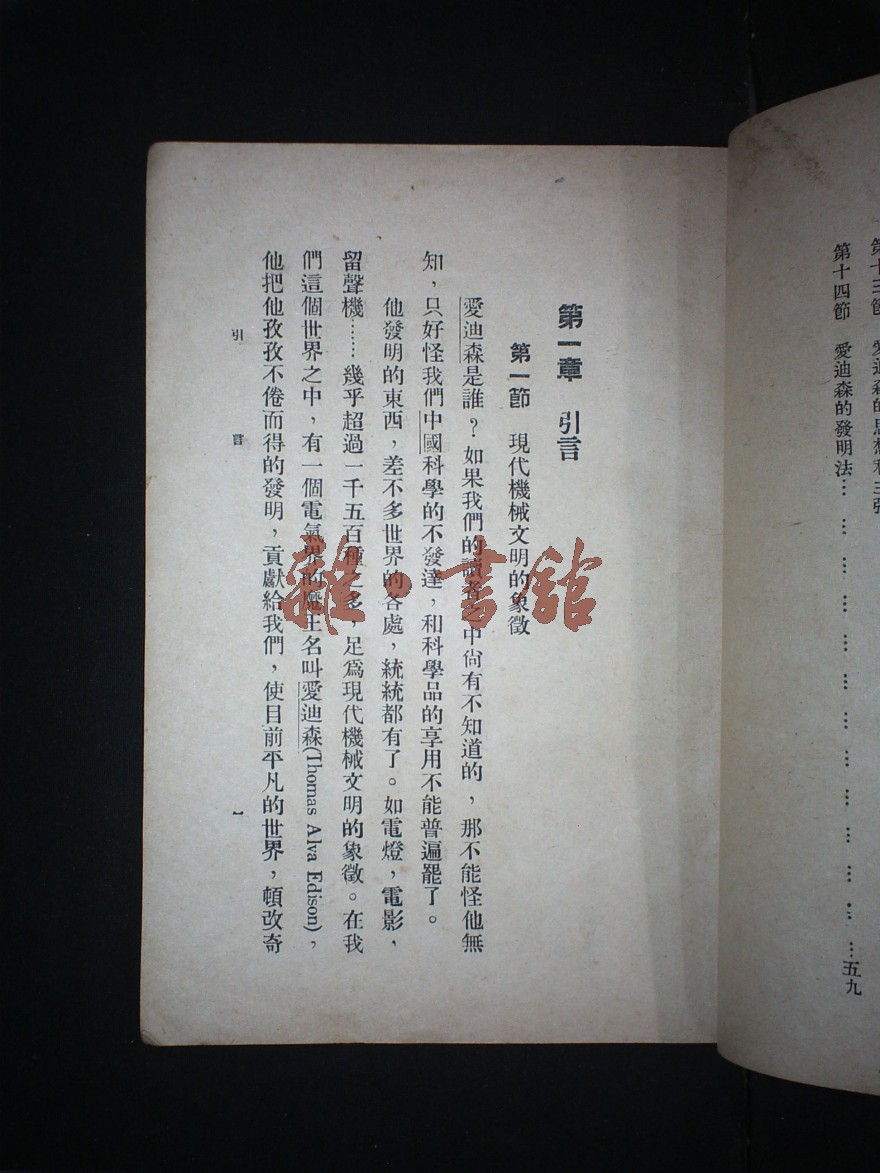 第十三節 愛迪森的思想和主張
第十四節 愛迪森的發明法 … … … … … … … … … … … 五九
第一章 引言
第一節 現代機械文明的象徵
愛迪森是誰？如果我們的讀者之中尙有不知道的，那不能怪他無
知，只好怪我們中國科學的不發達，和科學品的享用不能普遍罷了。
他發明的東西，差不多世界的各處，統統都有了。如電燈，電影，
留聲機……幾乎超過一千五百種之多，足爲現代機械文明的象徵。在我
們這個世界之中，有一個電氣界的魔王名叫愛迪森(Thomas Alva Edison)，
他把他孜孜不倦而得的發明，貢獻給我們，使目前平凡的世界，頓改奇
引 言 一
雜·書館